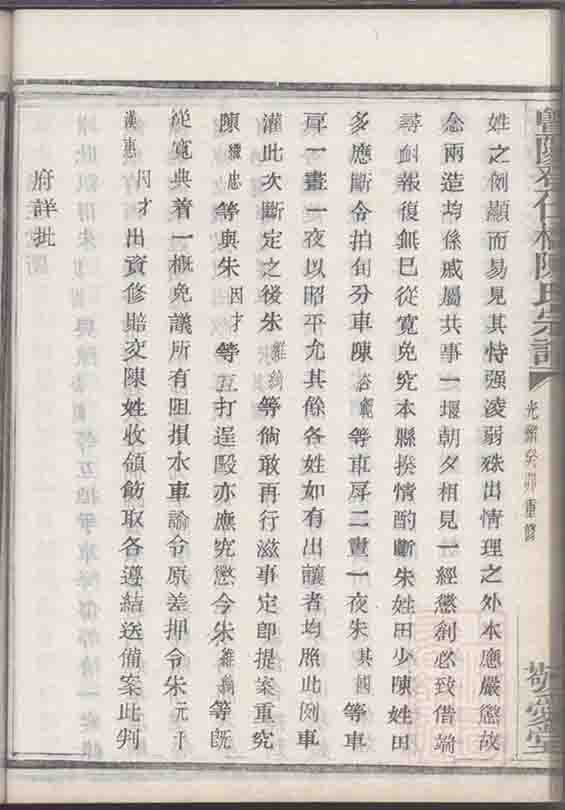 姓之例顯而易見其恃强凌弱殊出情理之外本應嚴懲故
念兩造均係戚屬共事一堰朝夕相見一經懲創必致借端
尋釁報復無已從寬免究本縣揆情酌斷朱姓田少陳姓田
多應斷令拍旬分車陳等車戽二晝一夜朱其四等車
戽一晝一夜以昭平允其餘各姓如有出讓者均照此例車
灌此次斷定之後朱等倘敢再行滋事定卽提案重究
陳繼忠等與朱因才等互打逞毆亦應究懲今朱等旣
從寬典着一概免議所有阻損水車諭令原差押令朱元千
漢惠因才出資修賠交陳姓收領飭取各遵結送備案此判
府詳批
暨陽孝仁橋陳氏宗譜
光緒癸卯重修
敬愛堂